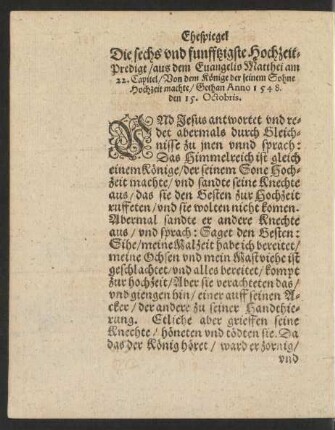 Ehespiegel
Die sechs vnd funfftzigste Hochzeit-
Predigt/aus dem Euangelio Matthei am
22. Capitel/Von dem Könige der seinem Sohne
Hochzeit machte/ Gethan Anno 1548.
den 15. Octobris.
UND Jesus antwortet vnd re-
det abermals durch Gleich-
nisse zu jnen vnnd sprach:
Das Himmelreich ist gleich
einem Könige/der seinem Sone Hoch-
zeit machte/ vnd sandte seine Knechte
aus/das sie den Gesten zur Hochzeit
ruffeten/vnd sie wolten nicht komen.
Abermal sandte er andere Knechte
aus/ vnd sprach: Saget den Gesten:
Sihe/meine Malzeit habe ich bereitet/
meine Ochsen vnd mein Mastviehe ist
geschlachtet/vnd alles bereitet/kompt
zur hochzeit/Aber sie verachteten das/
vnd giengen hin/einer auff seinen A-
cker/der andere zu seiner Handthie-
rung. Etliche aber grieffen seine
Knechte/ höneten vnd tödten sie. Da
das der König höret/ ward er zornig/
vnd